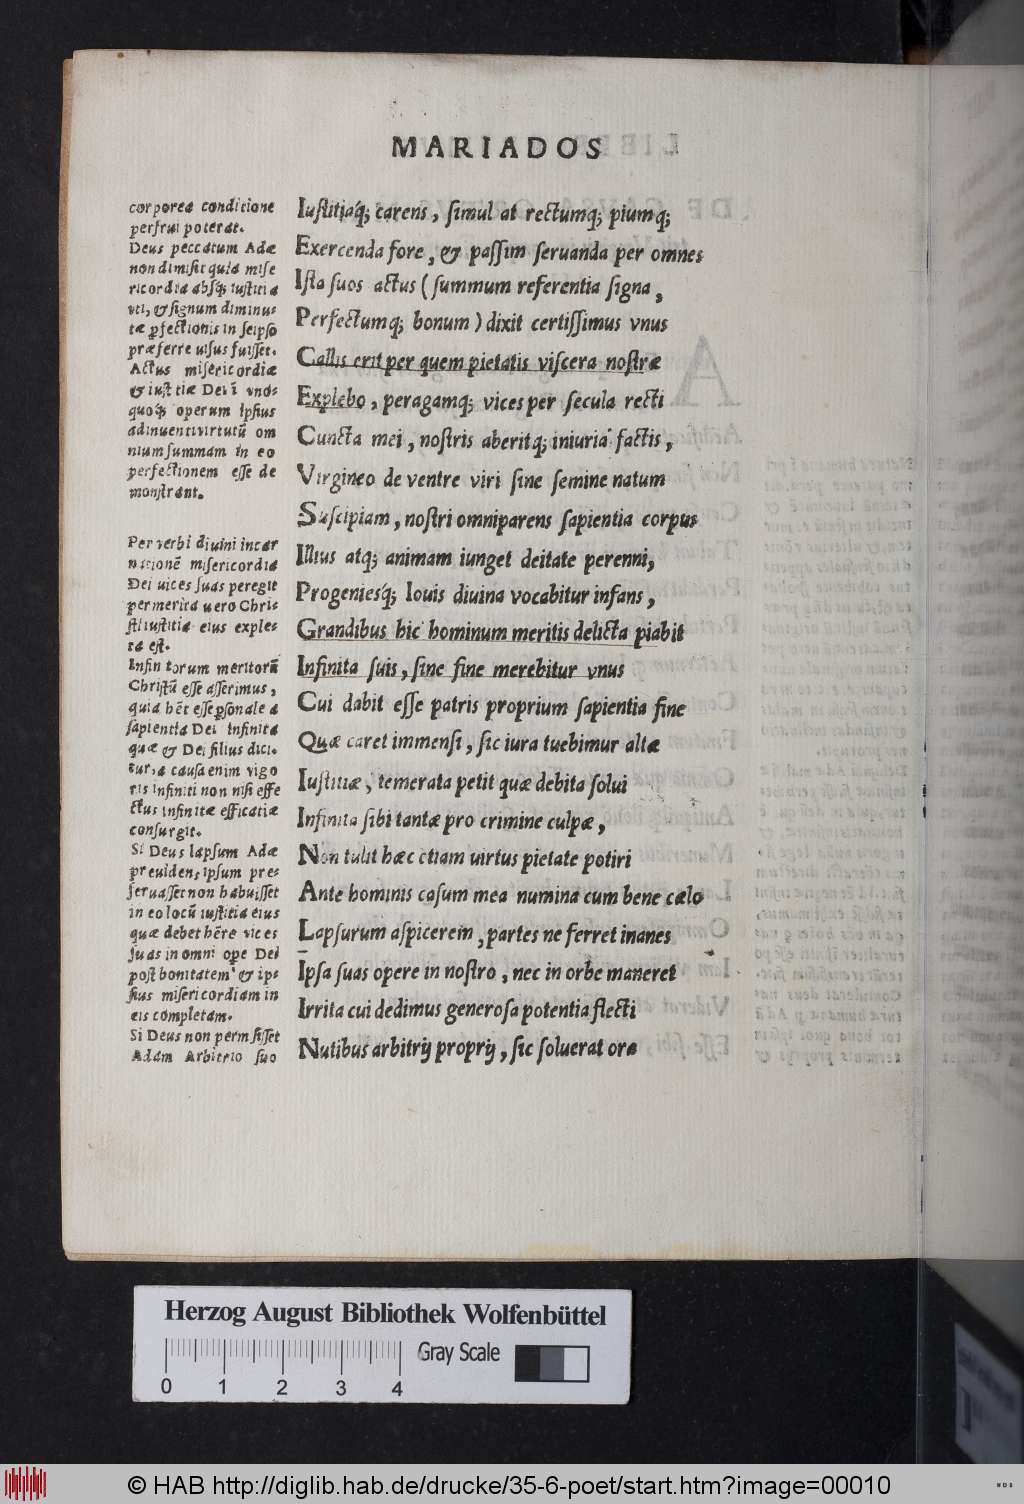 MARIADOS
corporea conditione
perfrui poterat.
Deus peccatum Adæ
non dimisit quia mise
ricordia absq; iustitia
vti, & signum diminu-
tæ ꝑfectionis in seipso
præferre uisus fuisset.
Actus misericordiæ
& iustitiæ Dei ĩ vno-
quoq; operum ipsius
adinuenti virtutũ om
nium summam in eo
perfectionem esse de
monstrant.
Per verbi diuini incar
nationẽ misericordia
Dei uices suas peregit
per merita uero Chri-
sti iustitia eius exple-
ta est.
Infinitorum meritorũ
Christũ esse asserimus,
quia hẽt esse ꝑsonale a
sapientia Dei infinita
quæ & Dei filius dici-
tur: a causa enim vigo
ris infiniti non nisi effe
ctus infinitæ efficatiæ
consurgit.
Si Deus lapsum Adæ
preuidens, ipsum pre-
seruasset non habuisset
in eo locũ iustitia eius
quæ debet hẽre vices
suas in omni oꝑe Dei
post bonitatem & ip-
sius misericordiam in
eis completam.
Si Deus non permisisset
Adam Arbitrio suo
Iustitiáq; carens, simul at rectumq; piumq;
Exercenda fore, & passim seruanda per omnes
Ista suos actus (summum referentia signa,
Perfectumq; bonum) dixit certissimus vnus
Callis erit per quem pietatis viscera nostræ
Explebo, peragamq; vices per secula recti
Cuncta mei, nostris aberitq; iniuria factis,
Virgineo de ventre viri sine semine natum
Suscipiam, nostri omniparens sapientia corpus
Illius atq; animam iunget deitate perenni,
Progeniesq́; Iouis diuina vocabitur infans,
Grandibus hic hominum meritis delicta piabit
Infinita suis, sine fine merebitur vnus
Cui dabit esse patris proprium sapientia fine
Quæ caret immensi, sic iura tuebimur altæ
Iustitiæ, temerata petit quæ debita solui
Infinita sibi tantæ pro crimine culpæ,
Non tulit hæc etiam uirtus pietate potiri
Ante hominis casum mea numina cum bene cælo
Lapsurum aspicerem, partes ne ferret inanes
Ipsa suas opere in nostro, nec in orbe maneret
Irrita cui dedimus generosa potentia flecti
Nutibus arbitrij proprij, sic solueratora
Herzog August Bibliothek Wolfenbüttel
Gray Scale
0 1 2 3 4
© HAB http://diglib.hab.de/drucke/35-6-poet/start.htm?image=00010